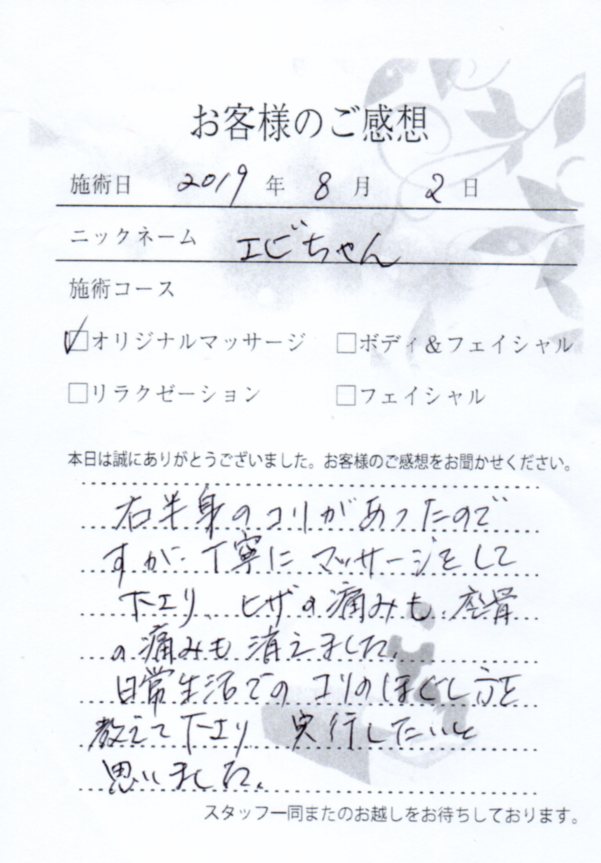 お客様のご感想
施術日 2019 年 8 月 2 日
ニックネーム エビちゃん
施術コース
☑オリジナルマッサージ □ボディ&フェイシャル
□リラクゼーション □フェイシャル
本日は誠にありがとうございました。お客様のご感想をお聞かせください。
右半身のコリがあったので
すが、丁寧にマッサージをして
下エリ、ヒザの痛みも、座骨
の痛みも消えました。
日常生活でのコリのほぐし方を
教えて下エリ 実行したいと
思いました。
スタッフ一同またのお越しをお待ちしております。